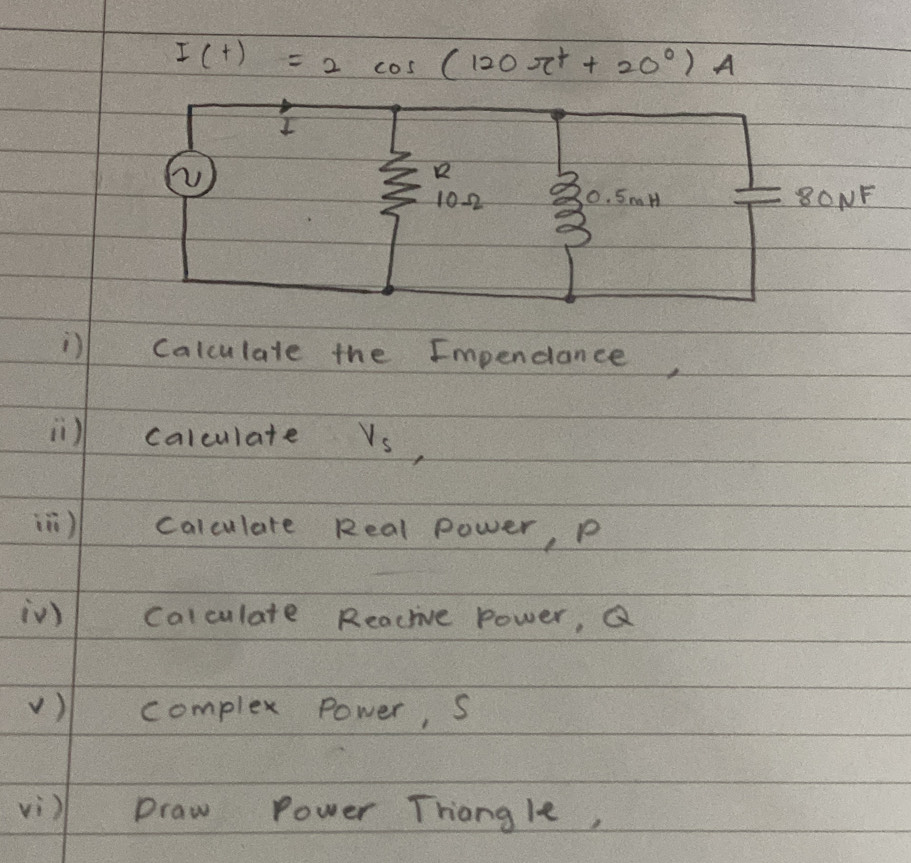 I(t) = 2 cos (120πt + 20°) A
I
R
10Ω
0.5mH
80NF
i) Calculate the Impendance,
ii) Calculate Vs,
iii) Calculate Real Power, P
iv) Calculate Reactive Power, Q
v) Complex Power, S
vi) Draw Power Triangle,